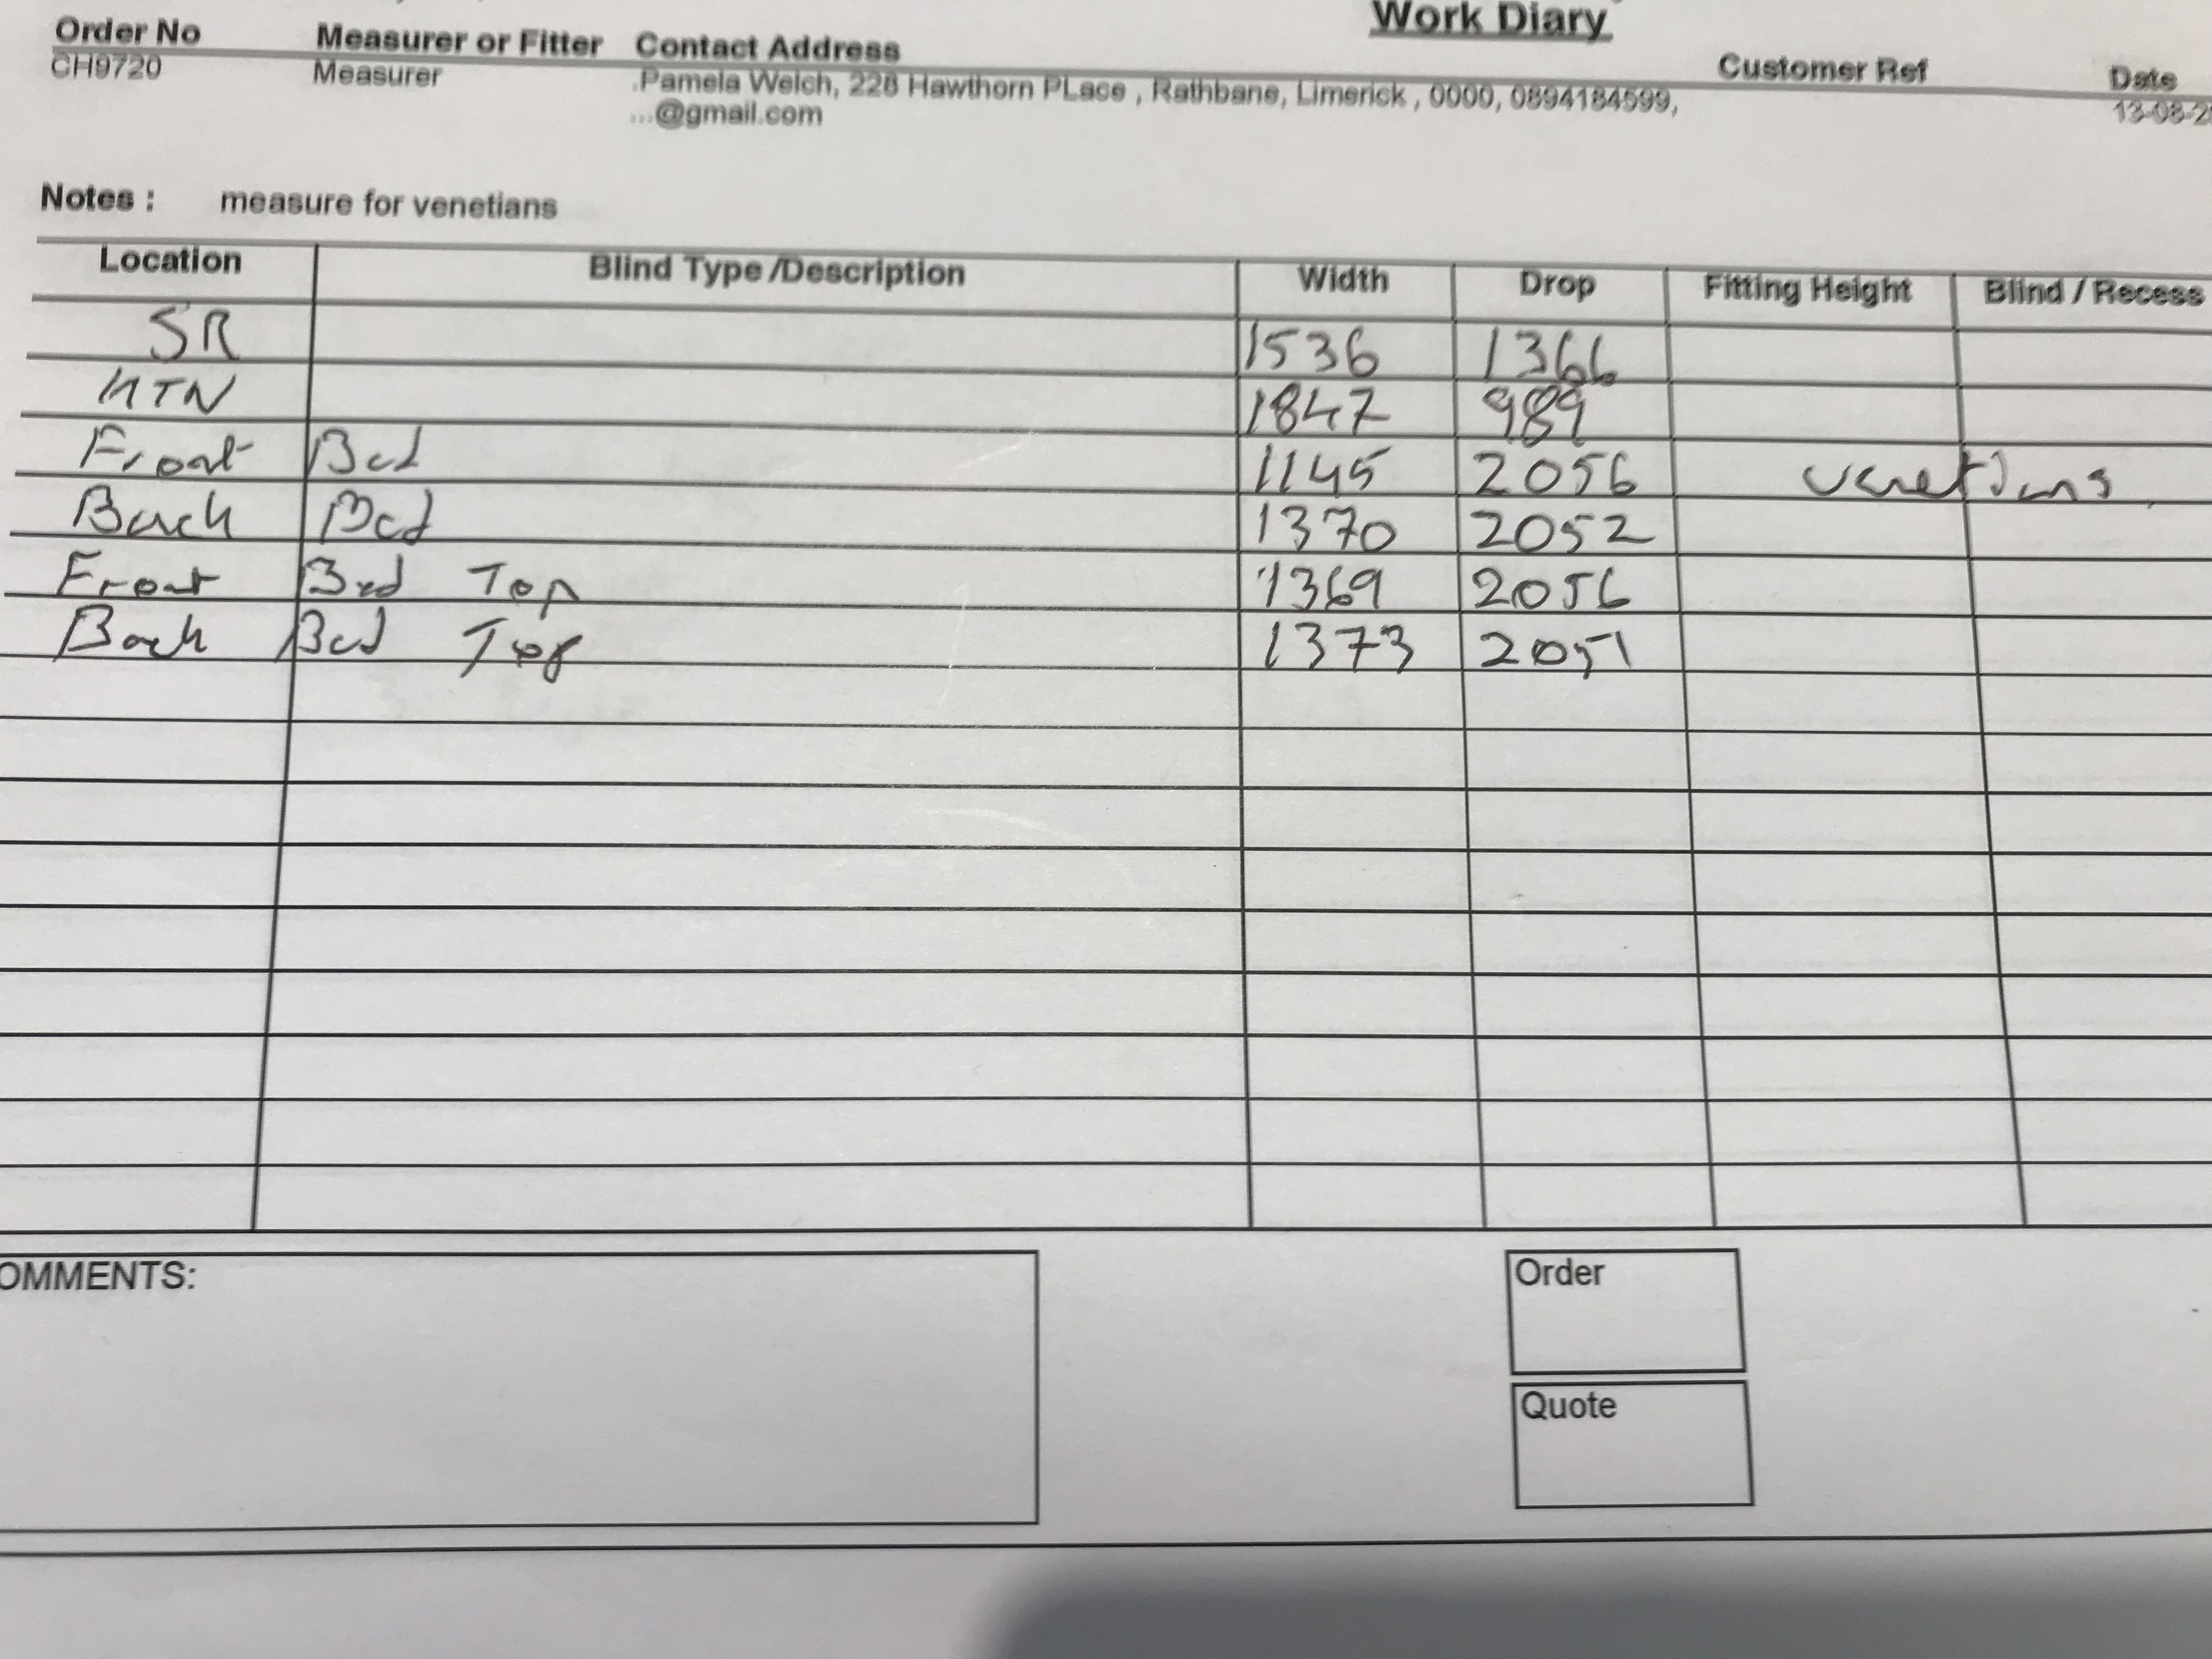 Work Diary
Order No Measurer or Fitter Contact Address Customer Ref Date
CH9720 Measurer .Pamela Welch, 228 Hawthorn PLace , Rathbane, Limerick , 0000, 0894184599, 13-08-2
...@gmail.com
Notes : measure for venetians
Location Blind Type /Description Width Drop Fitting Height Blind / Recess
SR 1536 1366
KTN 1847 989
Front Bed 1145 2056 venetians
Back Bed 1370 2052
Front Bed Top 1369 2056
Back Bed Top 1373 2051
OMMENTS:
Order
Quote